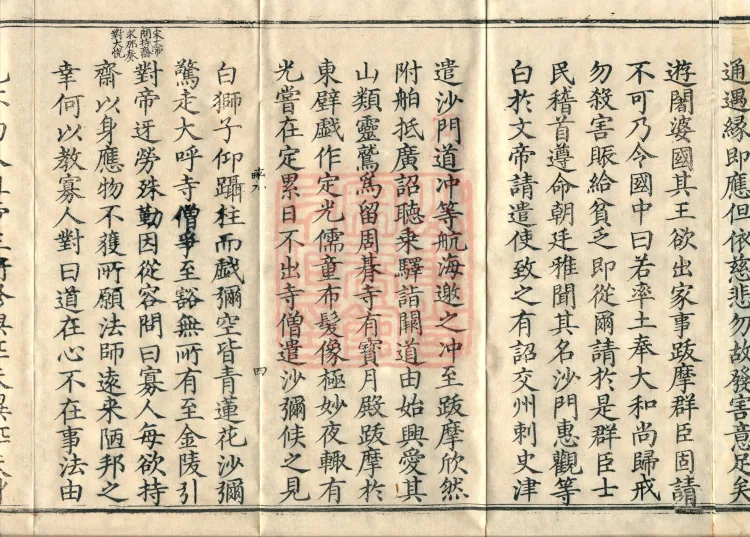 通遇縁即應但依慈悲勿故發害意足矣
遊闍婆國其王欲出家事跋摩群臣固請
不可乃令國中曰若率土奉大和尚歸戒
勿殺害賑給貧乏即從爾請於是群臣士
民稽首遵命朝廷雅聞其名沙門惠觀等
白於文帝請遣使致之有詔交州刺史津
遣沙門道冲等航海邀之冲至跋摩欣然
附舶抵廣詔聽乘驛詣闕道由始興愛其
山類靈鷲爲留周碁寺有寶月殿跋摩於
東壁戯作定光儒童布髮像極妙夜輒有
光嘗在定累日不出寺僧遣沙彌候之見
四
白獅子仰躡柱而戯彌空皆青蓮花沙彌
驚走大呼寺僧爭至豁無所有至金陵引
宋文帝
問持齋
求那奏
對大悅
對帝迓勞殊勤因從容問曰寡人每欲持
齋以身應物不獲所願法師遠来陋邦之
幸何以教寡人對曰道在心不在事法由